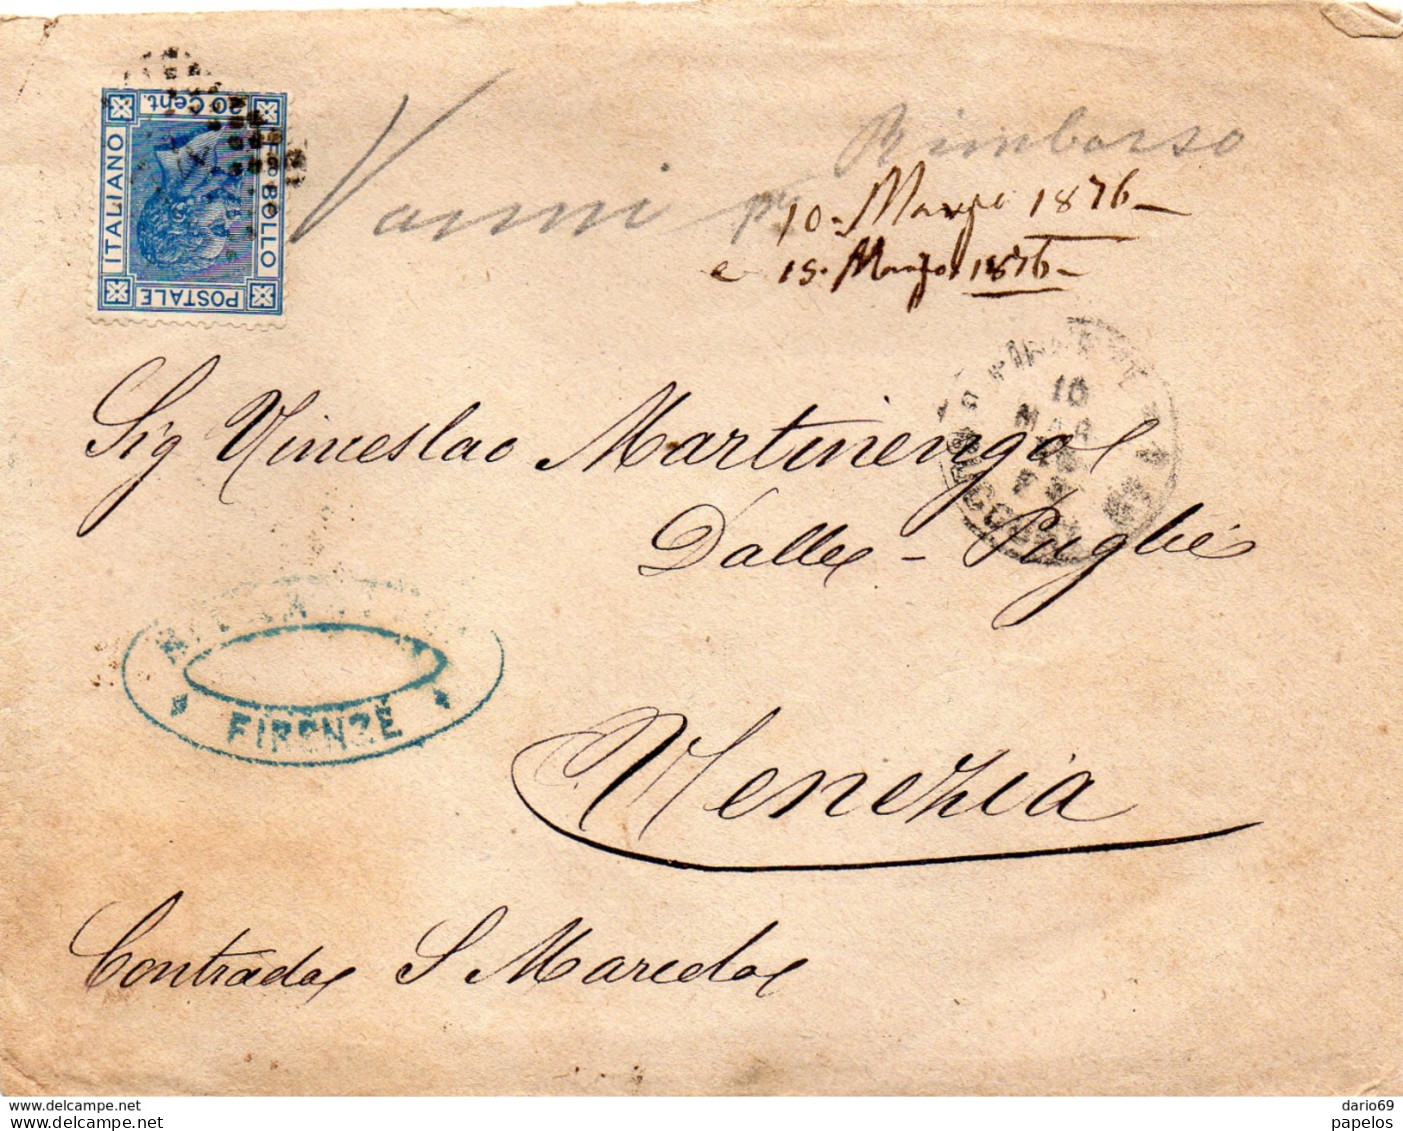 20 Cent.
BOLLO
ITALIANO
POSTALE
Vanni pr Rimborso
10. Marzo 1876
e 15. Marzo 1876
10
MAR
Sig Vinceslao Martinengo
Dalle - Paglie
FIRENZE
Venezia
Contrada S Marcola
www.delcampe.net
papelos
dario69
papelos